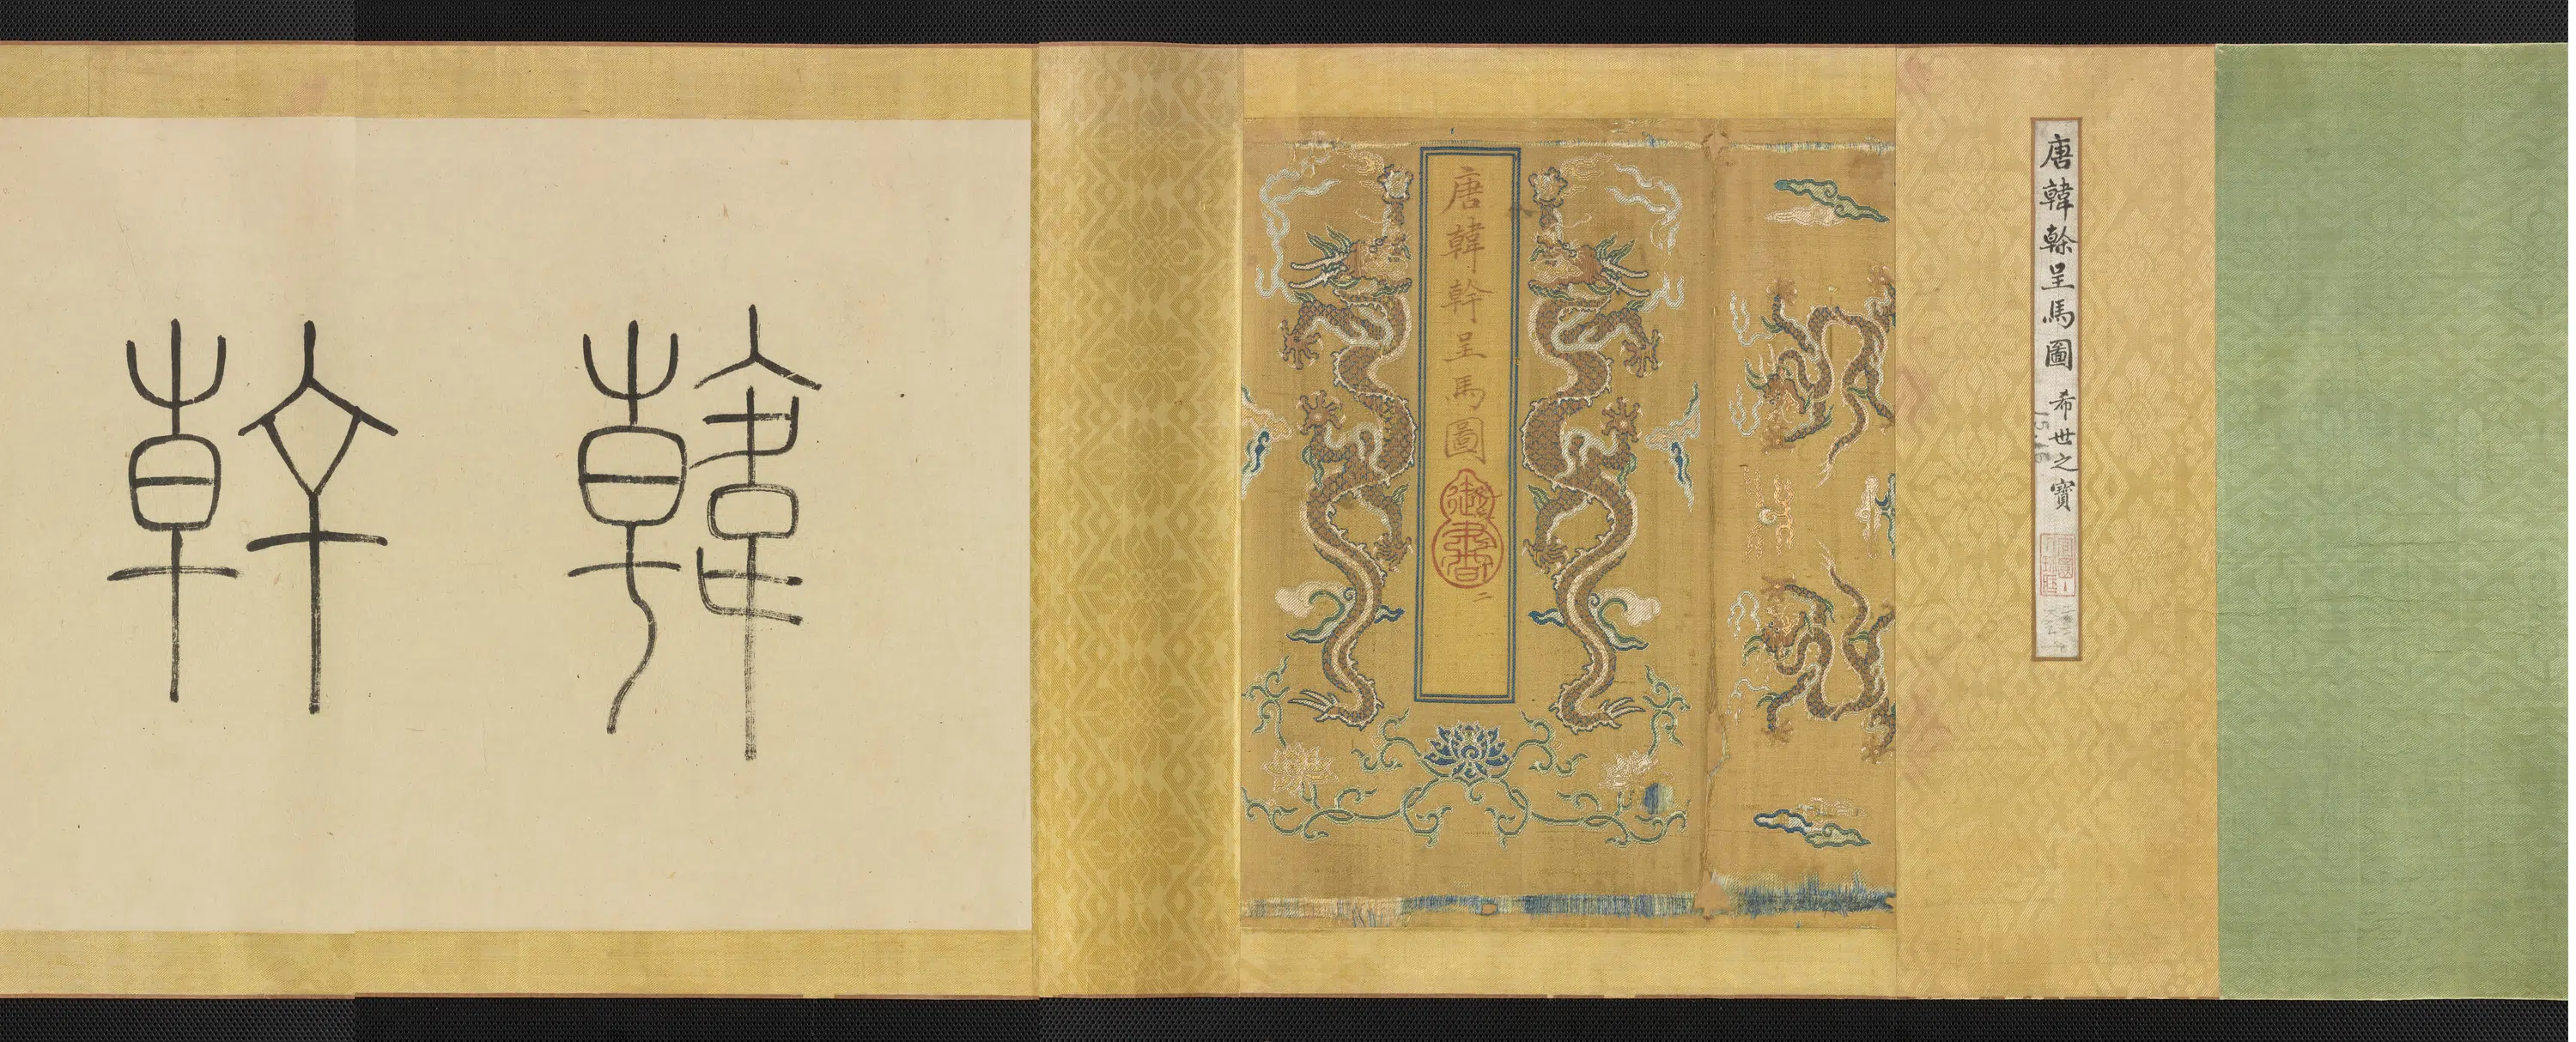 唐韓幹呈馬圖 希世之寶
唐韓幹呈馬圖
御書
韓幹